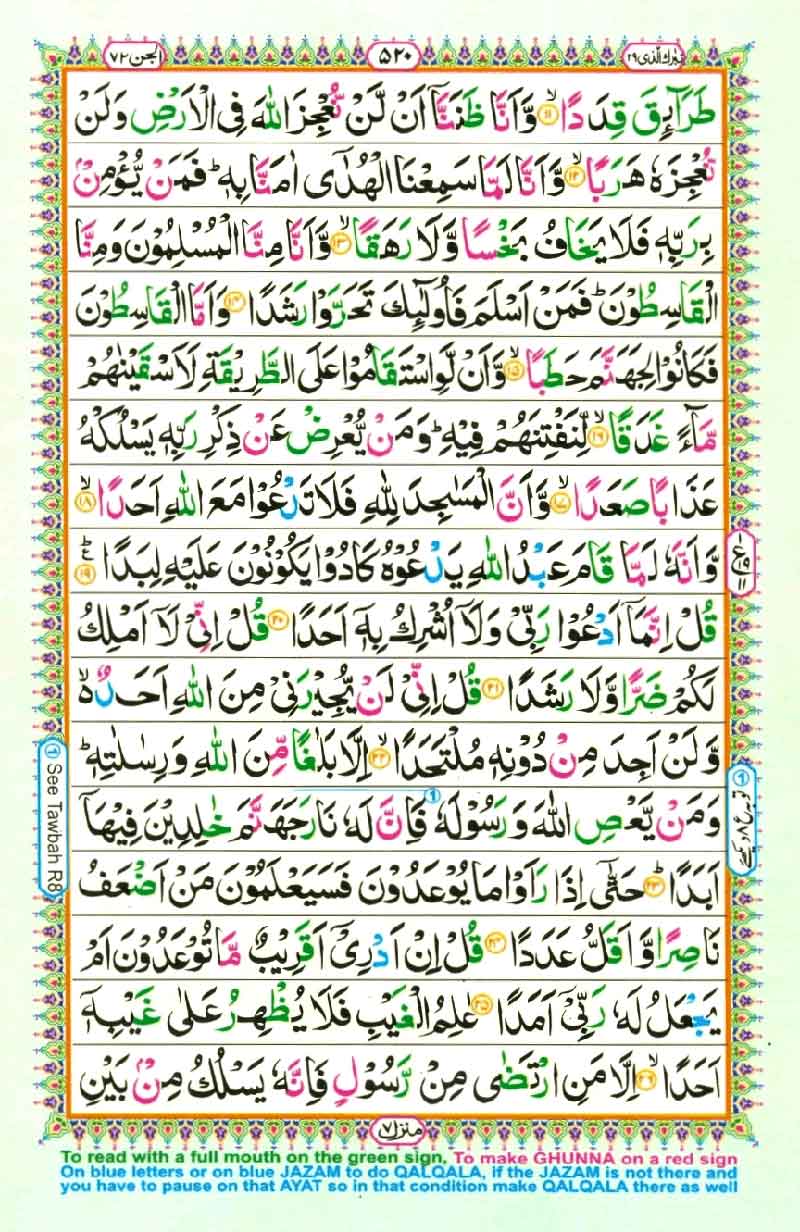 تبرك الذى ٢٩
٥٢٠
الجن ٧٢
طَرَآئِقَ قِدَدًا ﴿۱۱﴾ وَّاَنَّا ظَنَنَّاۤ اَنْ لَّنْ نُّعْجِزَ اللّٰهَ فِى الْاَرْضِ وَلَنْ
نُّعْجِزَهٗ هَرَبًا ﴿۱۲﴾ وَّاَنَّا لَمَّا سَمِعْنَا الْهُدٰٓى اٰمَنَّا بِهٖ ؕ فَمَنْ يُّؤْمِنْۢ
بِرَبِّهٖ فَلَا يَخَافُ بَخْسًا وَّلَا رَهَقًا ﴿۱۳﴾ وَّاَنَّا مِنَّا الْمُسْلِمُوْنَ وَمِنَّا
الْقَاسِطُوْنَ ؕ فَمَنْ اَسْلَمَ فَاُولٰٓئِكَ تَحَرَّوْا رَشَدًا ﴿۱۴﴾ وَاَمَّا الْقَاسِطُوْنَ
فَكَانُوْا لِجَهَنَّمَ حَطَبًا ﴿۱۵﴾ وَّاَنْ لَّوِاسْتَقَامُوْا عَلَى الطَّرِيْقَةِ لَاَسْقَيْنٰهُمْ
مَّآءً غَدَقًا ﴿۱۶﴾ لِّنَفْتِنَهُمْ فِيْهِ ؕ وَمَنْ يُّعْرِضْ عَنْ ذِكْرِ رَبِّهٖ يَسْلُكْهُ
عَذَابًا صَعَدًا ﴿۱۷﴾ وَّاَنَّ الْمَسٰجِدَ لِلّٰهِ فَلَا تَدْعُوْا مَعَ اللّٰهِ اَحَدًا ﴿۱۸﴾
وَّاَنَّهٗ لَمَّا قَامَ عَبْدُ اللّٰهِ يَدْعُوْهُ كَادُوْا يَكُوْنُوْنَ عَلَيْهِ لِبَدًا ﴿۱۹﴾
قُلْ اِنَّمَاۤ اَدْعُوْا رَبِّىْ وَلَاۤ اُشْرِكُ بِهٖۤ اَحَدًا ﴿۲۰﴾ قُلْ اِنِّىْ لَاۤ اَمْلِكُ
لَكُمْ ضَرًّا وَّلَا رَشَدًا ﴿۲۱﴾ قُلْ اِنِّىْ لَنْ يُّجِيْرَنِىْ مِنَ اللّٰهِ اَحَدٌ ۙ
وَّلَنْ اَجِدَ مِنْ دُوْنِهٖ مُلْتَحَدًا ﴿۲۲﴾ اِلَّا بَلٰغًا مِّنَ اللّٰهِ وَرِسٰلٰتِهٖ ؕ
وَمَنْ يَّعْصِ اللّٰهَ وَرَسُوْلَهٗ فَاِنَّ لَهٗ نَارَ جَهَنَّمَ خٰلِدِيْنَ فِيْهَاۤ
اَبَدًا ﴿۲۳﴾ ؕ حَتّٰۤى اِذَا رَاَوْا مَا يُوْعَدُوْنَ فَسَيَعْلَمُوْنَ مَنْ اَضْعَفُ
نَاصِرًا وَّاَقَلُّ عَدَدًا ﴿۲۴﴾ قُلْ اِنْ اَدْرِىْۤ اَقَرِيْبٌ مَّا تُوْعَدُوْنَ اَمْ
يَجْعَلُ لَهٗ رَبِّىْۤ اَمَدًا ﴿۲۵﴾ عٰلِمُ الْغَيْبِ فَلَا يُظْهِرُ عَلٰى غَيْبِهٖۤ
اَحَدًا ﴿۲۶﴾ اِلَّا مَنِ ارْتَضٰى مِنْ رَّسُوْلٍ فَاِنَّهٗ يَسْلُكُ مِنْۢ بَيْنِ
منزل ٧
① See Tawbah R8
To read with a full mouth on the green sign. To make GHUNNA on a red sign
On blue letters or on blue JAZAM to do QALQALA, if the JAZAM is not there and
you have to pause on that AYAT so in that condition make QALQALA there as well